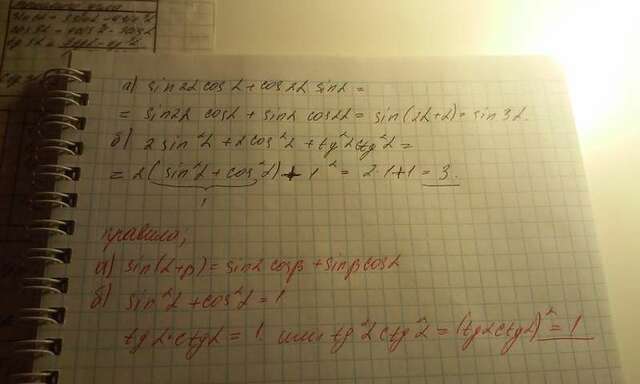 sin3α = 3sinα - 4sin³α
cos3α = 4cos³α - 3cosα
а) sin2α cosα + cos2α sinα =
= sin2α cosα + sinα cos2α = sin(2α+α) = sin3α.
б) 2sin²α + 2cos²α + tg²α ctg²α =
= 2(sin²α + cos²α) + 1² = 2·1+1 = 3.
1
правила;
а) sin(α+β) = sinα cosβ + sinβ cosα
б) sin²α + cos²α = 1
tgα·ctgα = 1. или tg²α ctg²α = (tgα ctgα)² = 1